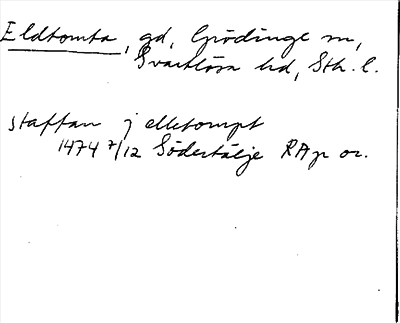 Eldtomta, gd, Grödinge sn,
Svartlösa hd, Sth. l.
staffan j elletompt
1474 7/12 Södertälje RAp or.